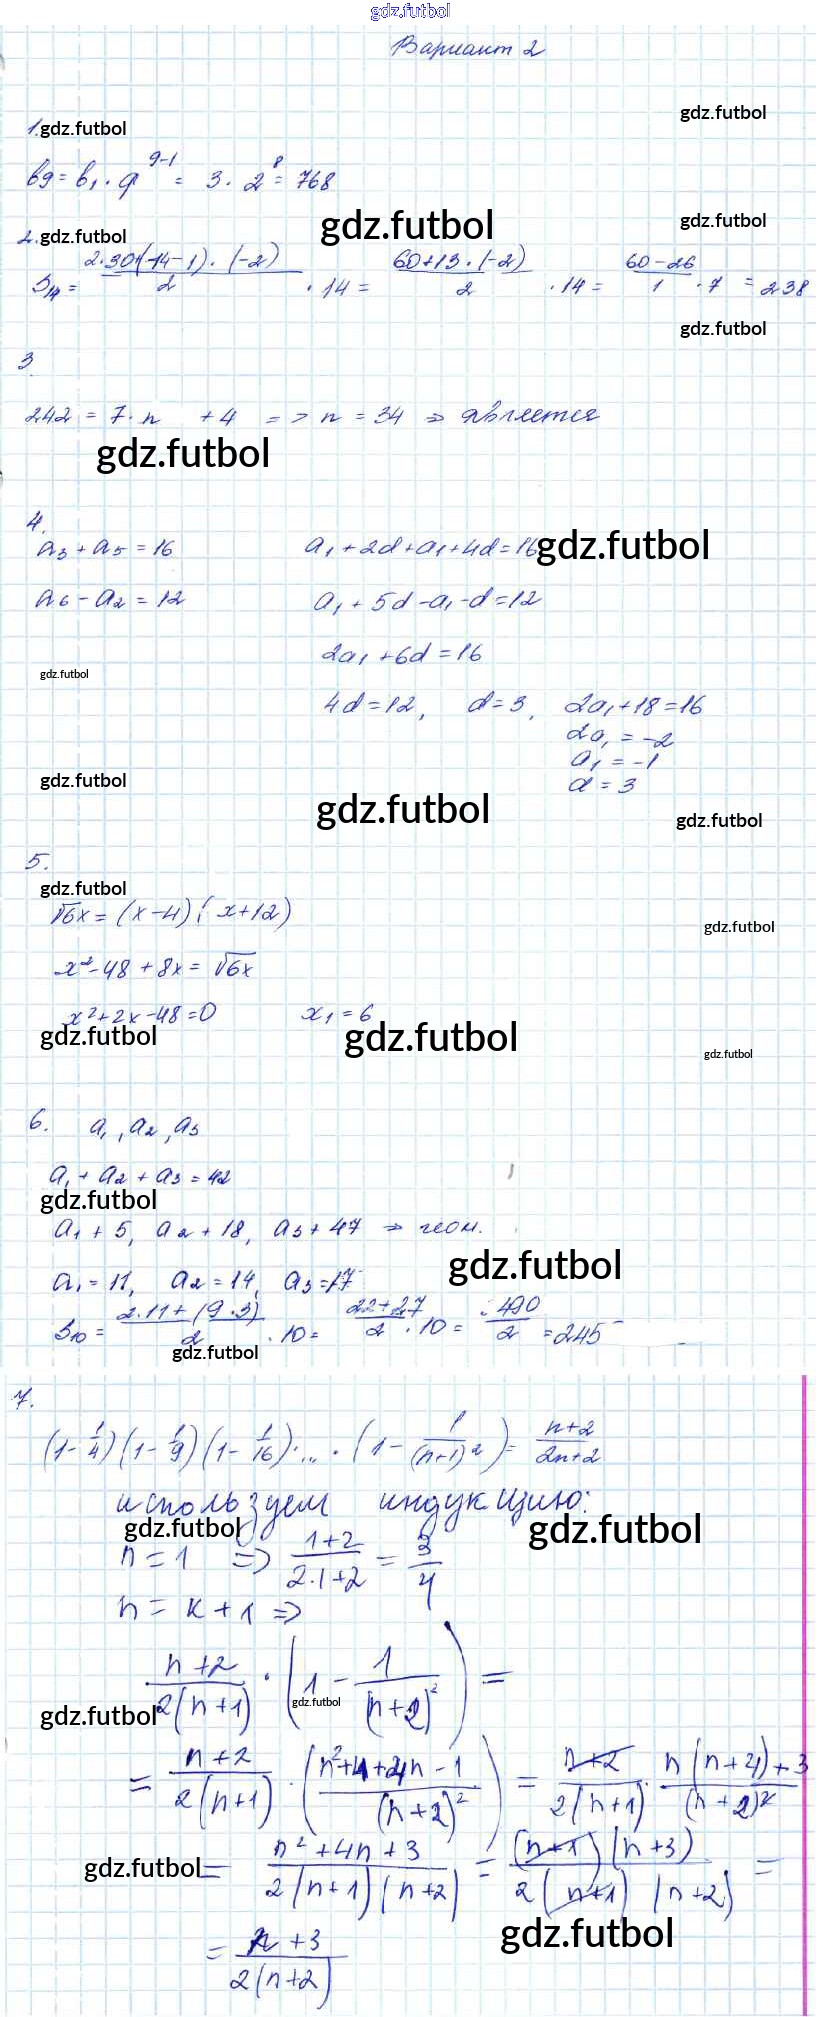 gdz.futbol
Вариант 2
gdz.futbol
1. gdz.futbol
b9 = b1 · q^(9-1) = 3 · 2^8 = 768
gdz.futbol gdz.futbol
2. gdz.futbol
S14 = (2·30+(14-1)·(-2))/2 · 14 = (60+13·(-2))/2 · 14 = (60-26)/1 · 7 = 238
gdz.futbol
3
242 = 7·n + 4 => n = 34 => является
gdz.futbol
4.
a3 + a5 = 16 a1 + 2d + a1 + 4d = 16 gdz.futbol
a6 - a2 = 12 a1 + 5d - a1 - d = 12
2a1 + 6d = 16
gdz.futbol
4d = 12, d = 3, 2a1 + 18 = 16
2a1 = -2
a1 = -1
gdz.futbol d = 3
gdz.futbol gdz.futbol
5.
gdz.futbol
√6x = (x-4)(x+12) gdz.futbol
x² - 48 + 8x = √6x
x² + 2x - 48 = 0 x1 = 6
gdz.futbol gdz.futbol gdz.futbol
6. a1, a2, a3
a1 + a2 + a3 = 42
gdz.futbol
a1 + 5, a2 + 18, a3 + 47 => геом.
gdz.futbol
a1 = 11, a2 = 14, a3 = 17
S10 = (2·11 + (9·3))/2 · 10 = (22+27)/2 · 10 = 490/2 = 245
gdz.futbol
7.
(1 - 1/4)(1 - 1/9)(1 - 1/16)·...·(1 - 1/(n+1)²) = (n+2)/(2n+2)
используем индукцию:
gdz.futbol gdz.futbol
n = 1 => (1+2)/(2·1+2) = 3/4
n = k + 1 =>
(n+2)/(2(n+1)) · (1 - 1/(n+2)²) =
gdz.futbol gdz.futbol
= (n+2)/(2(n+1)) · ((n²+4+4n-1)/(n+2)²) = (n+2)/(2(n+1)) · (n(n+4)+3)/(n+2)²
gdz.futbol = (n²+4n+3)/(2(n+1)(n+2)) = ((n+1)(n+3))/(2(n+1)(n+2)) =
gdz.futbol
= (n+3)/(2(n+2))